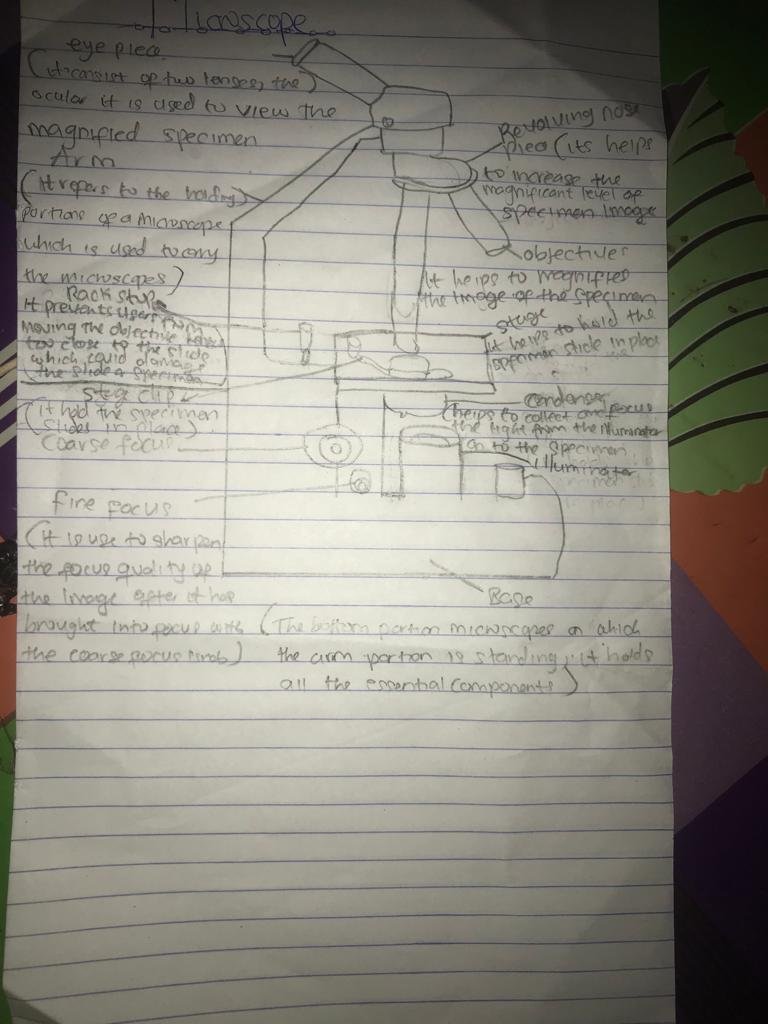 Microscope
eye piece
(it consist of two lenses, the)
ocular it is used to view the
magnified specimen
Arm
(It repers to the holding)
portions of a Microscope
which is used to carry
the microscopes)
Rack stop
It prevents users from
moving the objective lense
too close to the slide
which could damage
the slide & specimen
stage clip
(it hold the specimen
slides in place)
Coarse focus
fine focus
(It is use to sharpen
the focus quality of
the image after it has
brought into focus with
the coarse focus knob)
Revolving nose
piece (its helps
to increase the
magnificant level of
specimen Image
objectives
It helps to magnifies
the Image of the specimen
stage
it helps to hold the
specimen slide in place
condenser
(helps to collect and focus
the light from the illuminator
on to the specimen
illuminator
Base
(The bottom portion microscopes on which
the arm portion is standing, it holds
all the essential components)